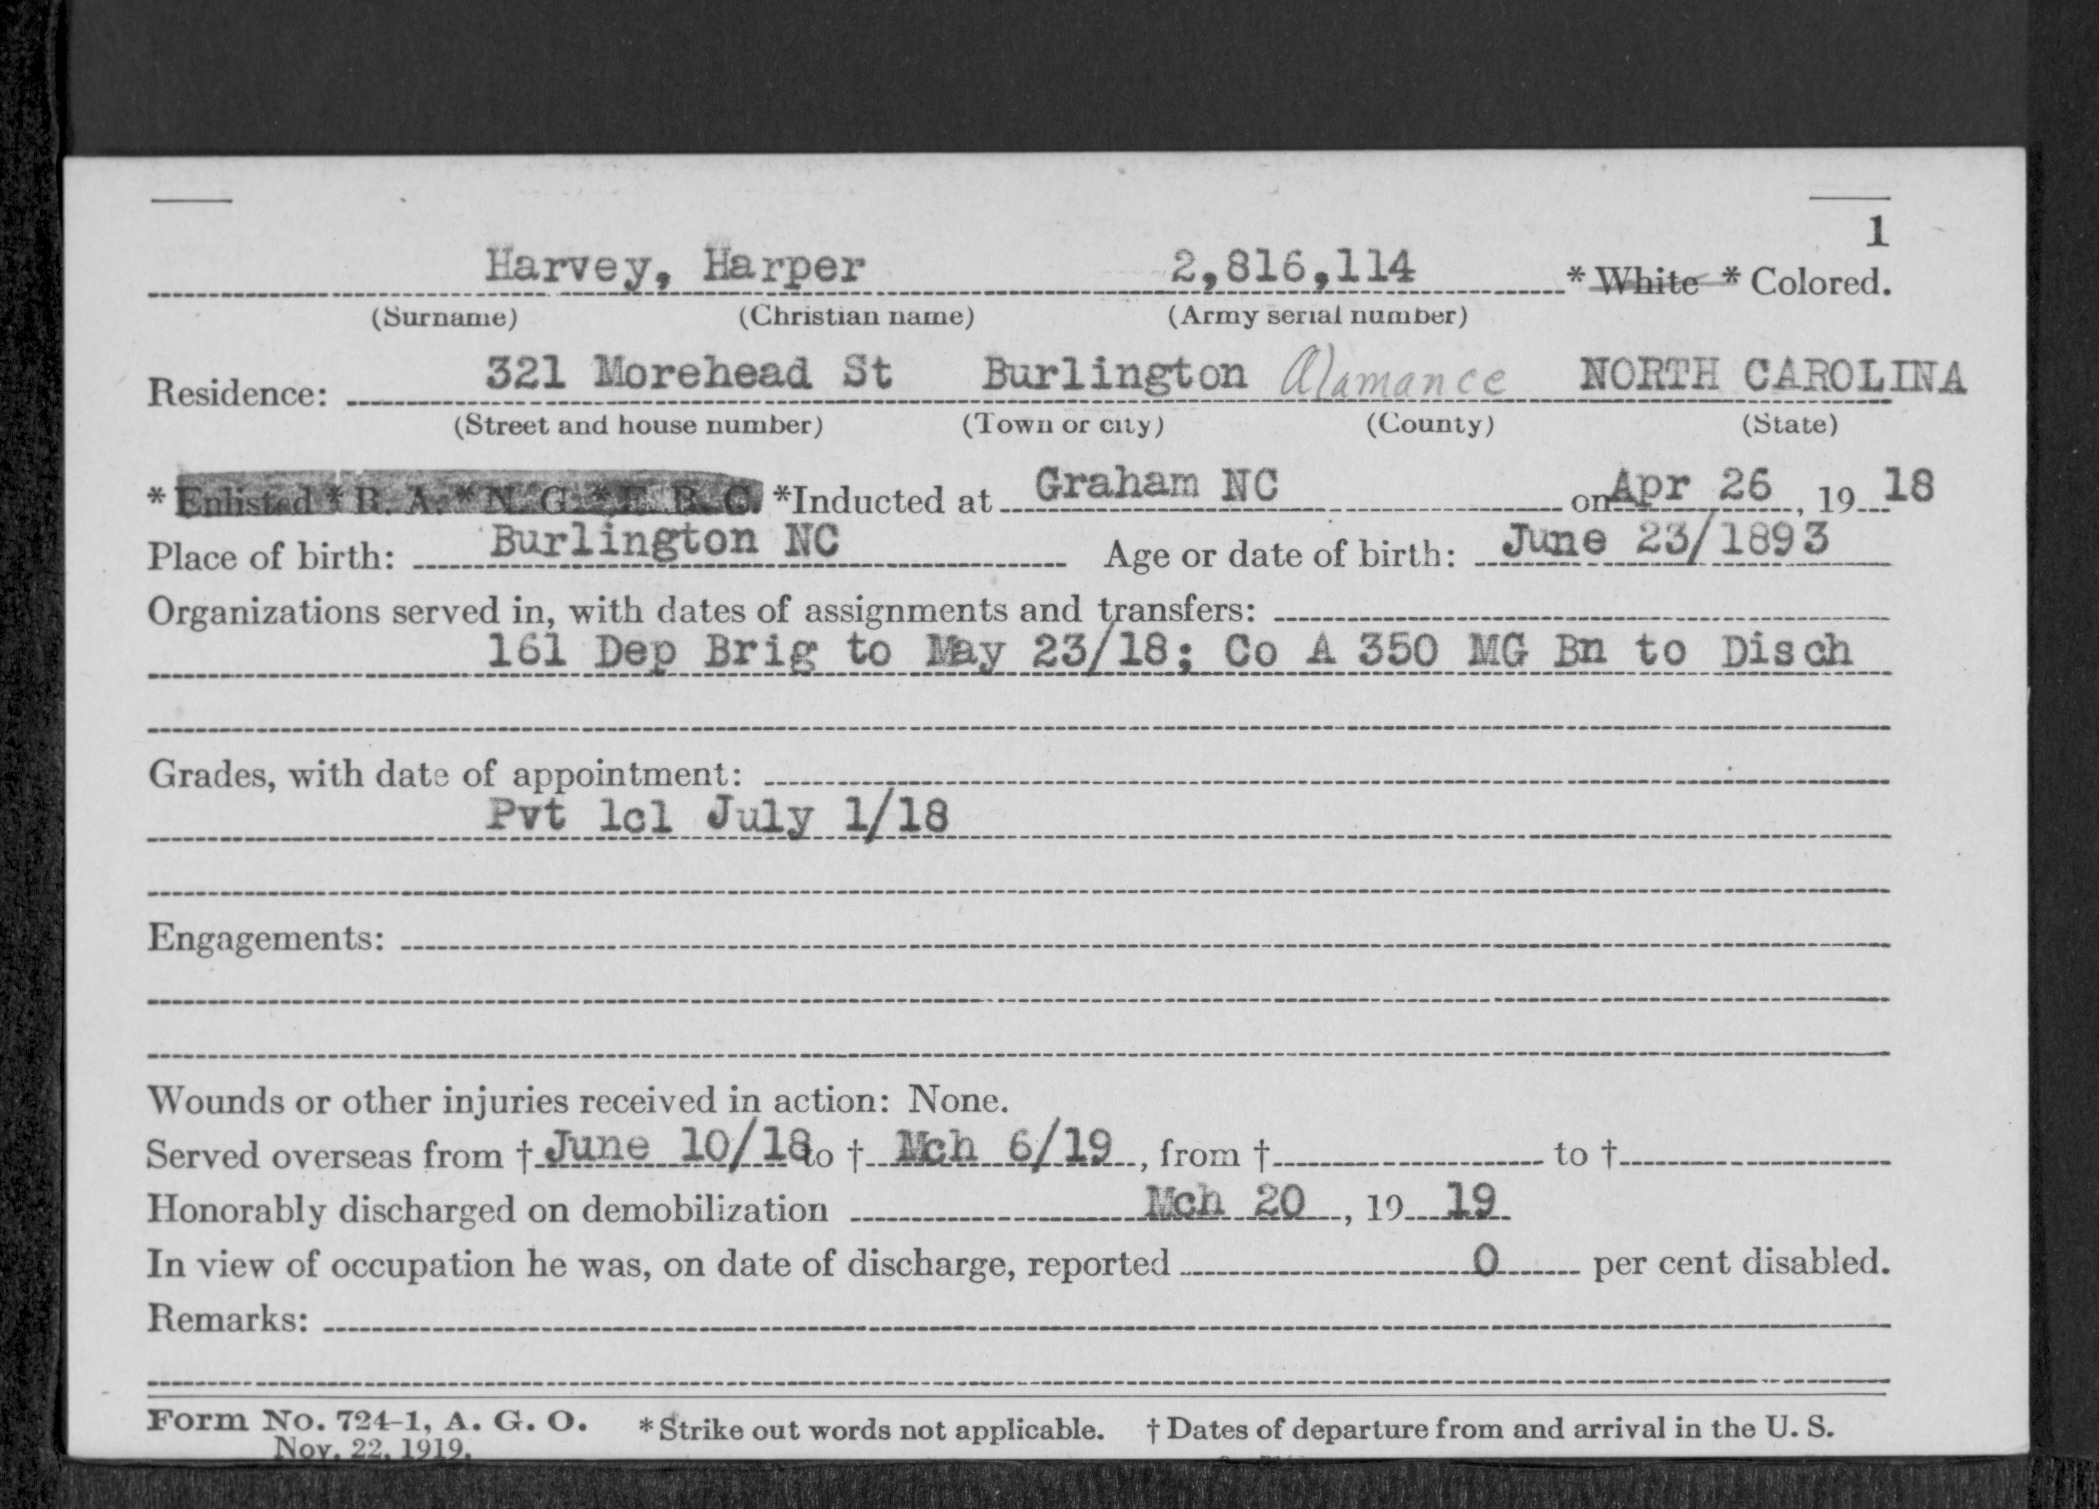 1
Harvey, Harper 2,816,114 * White * Colored.
(Surname) (Christian name) (Army serial number)
Residence: 321 Morehead St Burlington Alamance NORTH CAROLINA
(Street and house number) (Town or city) (County) (State)
* Enlisted * R. A. * N. G. * E. R. C. *Inducted at Graham NC on Apr 26, 19 18
Place of birth: Burlington NC Age or date of birth: June 23/1893
Organizations served in, with dates of assignments and transfers:
161 Dep Brig to May 23/18; Co A 350 MG Bn to Disch
Grades, with date of appointment:
Pvt 1cl July 1/18
Engagements:
Wounds or other injuries received in action: None.
Served overseas from † June 10/18 to † Mch 6/19, from † to †
Honorably discharged on demobilization Mch 20, 19 19
In view of occupation he was, on date of discharge, reported 0 per cent disabled.
Remarks:
Form No. 724-1, A. G. O. * Strike out words not applicable. † Dates of departure from and arrival in the U. S.
Nov. 22, 1919.